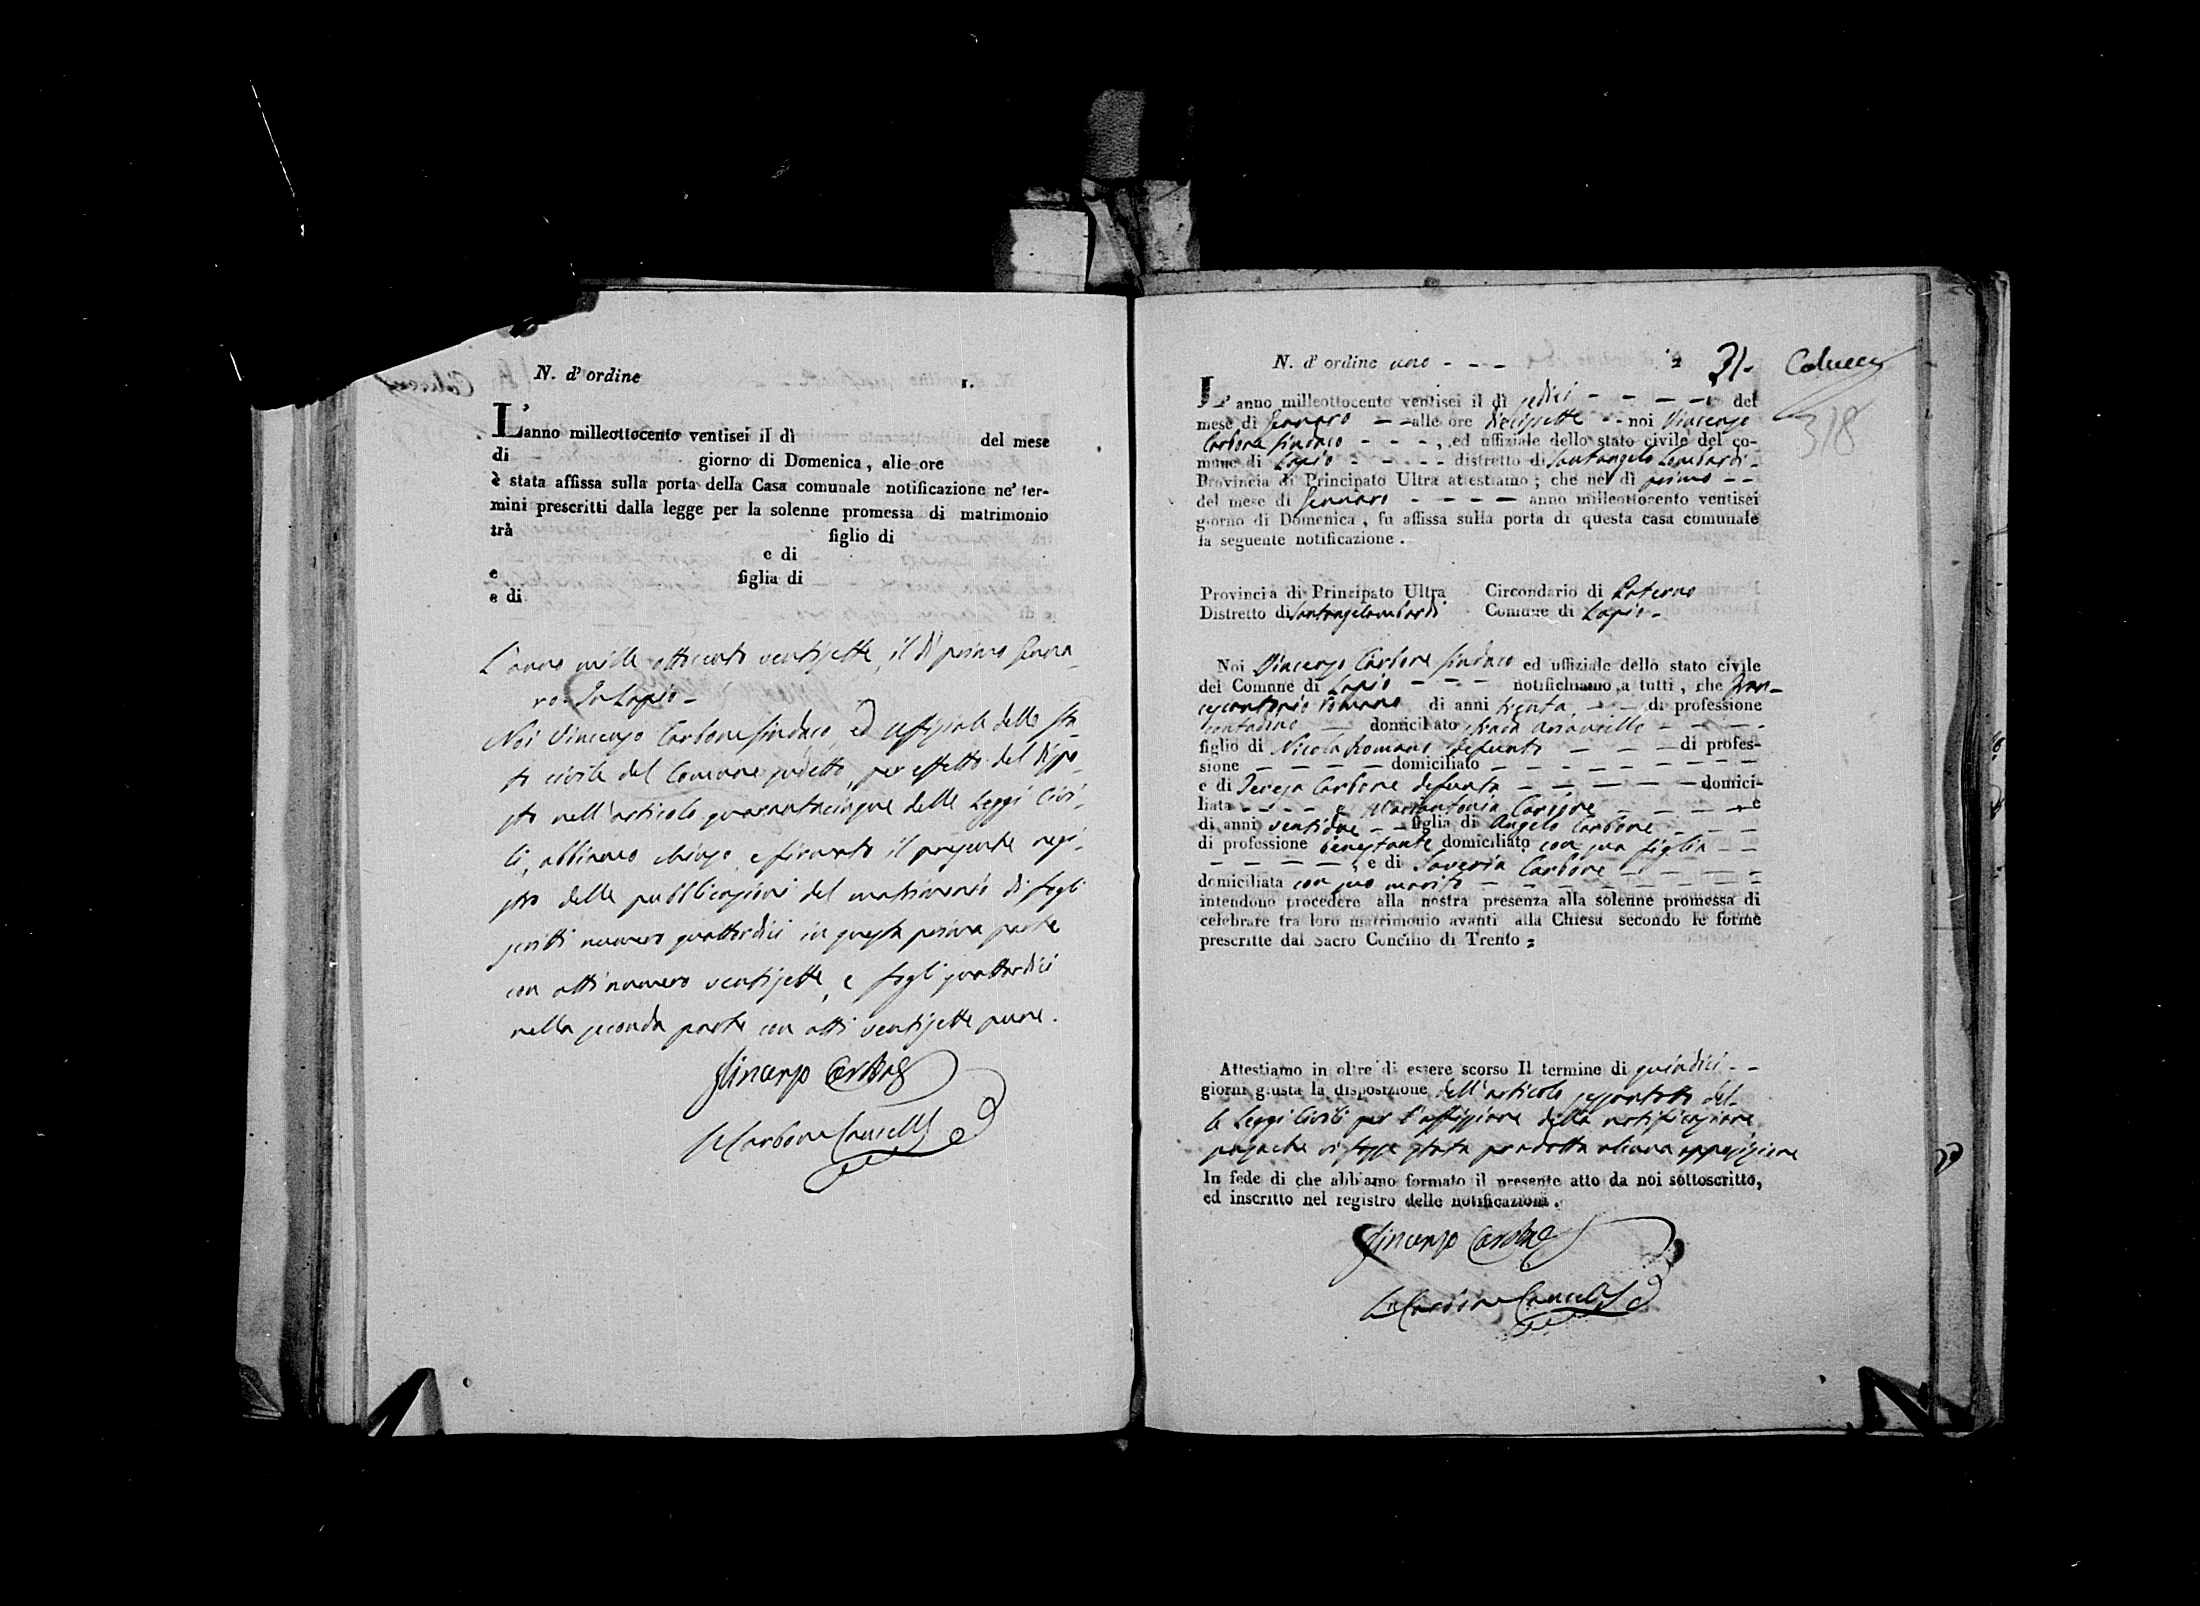 N. d' ordine
1.
L'anno milleottocento ventisei il dì del mese
di giorno di Domenica, alle ore
è stata affissa sulla porta della Casa comunale notificazione ne' ter-
mini prescritti dalla legge per la solenne promessa di matrimonio
trà figlio di
e di
e figlia di
e di
L'anno mille ottocento ventisette, il dì primo Genna-
ro. In Lapio -
Noi Vincenzo Carbone Sindaco, ed Uffiziale dello sta-
to civile del Comune sudetto, per effetto del dispo-
sto nell'articolo quarantacinque delle Leggi Civi-
li, abbiamo chiuso, e firmato il presente regi-
stro delle pubblicazioni del matrimonio di fogli
scritti numero quattordici in questa prima parte
con atti numero ventisette, e fogli quattordici
nella seconda parte con atti ventisette pure.
Vincenzo Carbone
Carbone Cancell
N. d' ordine uno - - -
31. Colucci
318
L'anno milleottocento ventisei il dì sedici - - - - - del
mese di Gennaro - - alle ore diecisette - - noi Vincenzo
Carbone Sindaco - - - , ed uffiziale dello stato civile del co-
mune di Lapio - - - - - distretto di Santangelo Lombardi -
Provincia di Principato Ultra attestiamo; che nel dì primo - -
del mese di Gennaro - - - - - anno milleottocento ventisei
giorno di Domenica, fu affissa sulla porta di questa casa comunale
la seguente notificazione.
Provincia di Principato Ultra Circondario di Paterno
Distretto di Santangelombardi Comune di Lapio -
Noi Vincenzo Carbone Sindaco ed uffiziale dello stato civile
del Comune di Lapio - - - notifichiamo a tutti, che Fran-
cescantonio Romano di anni trenta - - di professione
contadino - domiciliato strada
figlio di Nicola Romano defunto - - - di profes-
sione - - - - - domiciliato - - - - - - - - -
e di Teresa Carbone defunta - - - - - - domici-
liata - - - - e Mariantonia Carbone - - - - - e
di anni ventidue - - figlia di Angelo Carbone - - -
di professione benestante domiciliato con sua figlia - -
- - - - - , e di Saveria Carbone - - - - -
domiciliata con suo marito - - - - - - - - -
intendono procedere alla nostra presenza alla solenne promessa di
celebrare tra loro matrimonio avanti alla Chiesa secondo le forme
prescritte dal Sacro Concilio di Trento:
Attestiamo in oltre di essere scorso Il termine di quindici - -
giorni giusta la disposizione dell'articolo sessantotto del-
le Leggi Civili per l'affissione della notificazione,
senzache vi fosse stata prodotta alcuna opposizione
In fede di che abbiamo formato il presente atto da noi sottoscritto,
ed inscritto nel registro delle notificazioni.
Vincenzo Carbone
Carbone Cancell